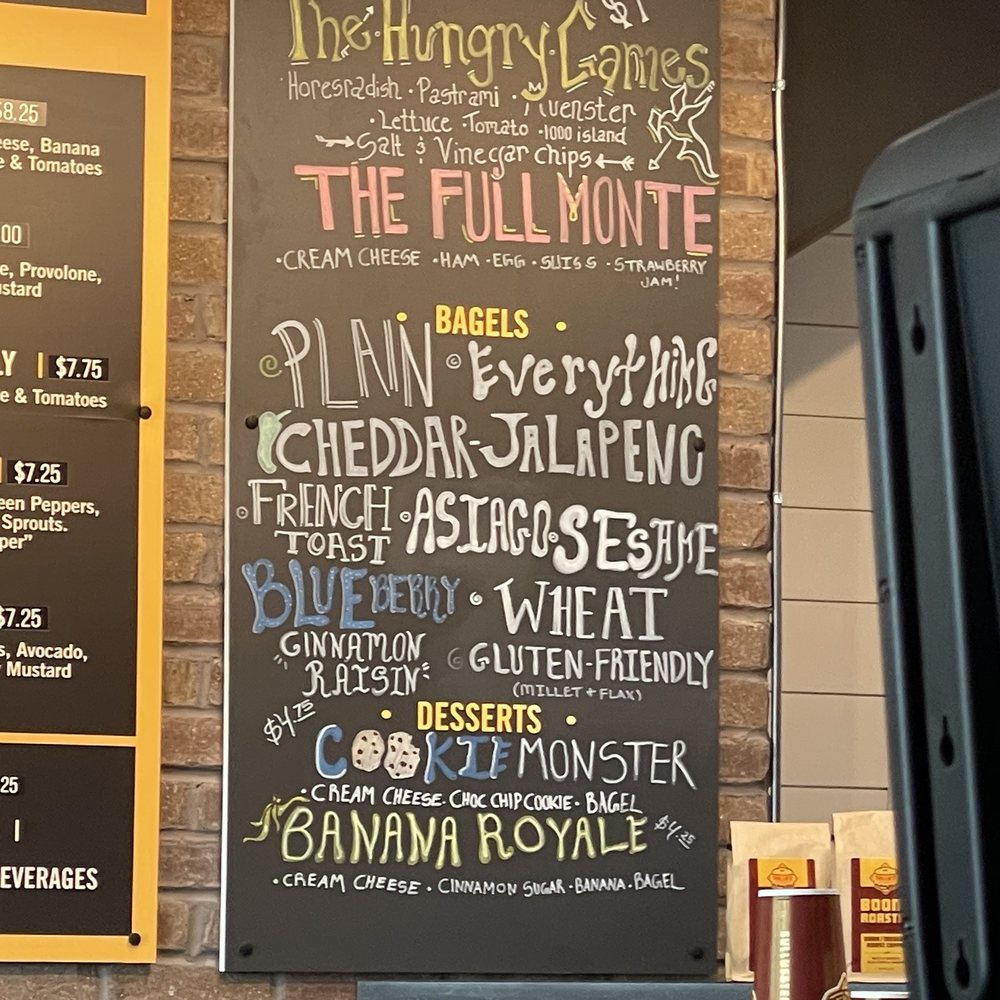 $8.25
eese, Banana
e & Tomatoes
.00
e, Provolone,
ustard
LY | $7.75
e & Tomatoes
$7.25
een Peppers,
Sprouts.
per”
$7.25
s, Avocado,
Mustard
25
|
EVERAGES
The Hungry Games
Horesradish · Pastrami · Muenster
· Lettuce · Tomato · 1000 island
Salt & Vinegar chips
THE FULL MONTE
· CREAM CHEESE · HAM · EGG · SWISS · STRAWBERRY
JAM!
· BAGELS ·
PLAIN · EverythiNG
CHEDDAR-JALAPENO
FRENCH TOAST · ASIAGO · SESAME
BLUEBERRY · WHEAT
CINNAMON RAISIN
GLUTEN-FRIENDLY
(MILLET + FLAX)
$4.75
· DESSERTS ·
COOKIE MONSTER
· CREAM CHEESE · CHOC CHIP COOKIE · BAGEL
BANANA ROYALE $4.25
· CREAM CHEESE · CINNAMON SUGAR · BANANA · BAGEL
BOON
ROAST